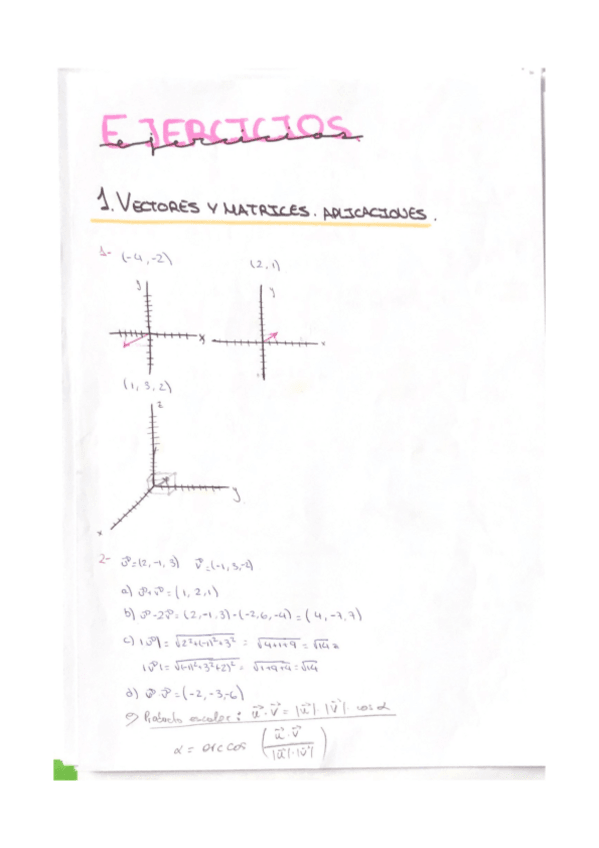 EJERCICIOS
ejercicios
1. VECTORES Y MATRICES. APLICACIONES.
1- (-4,-2)
(2,1)
y
x
y
x
(1,3,2)
z
y
x
2- u⃗=(2,-1,3) v⃗=(-1,3,-2)
a) u⃗+v⃗=(1,2,1)
b) u⃗-2v⃗=(2,-1,3)-(-2,6,-4)=(4,-7,7)
c) |u⃗|=√2²+(-1)²+3² = √4+1+9 = √14
|v⃗|=√(-1)²+3²+2)² = √1+9+4=√14
d) u⃗·v⃗=(-2,-3,-6)
e) Producto escalar: u⃗·v⃗=|u⃗|·|v⃗|·cos α
α = arccos (u⃗·v⃗ / |u⃗|·|v⃗|)